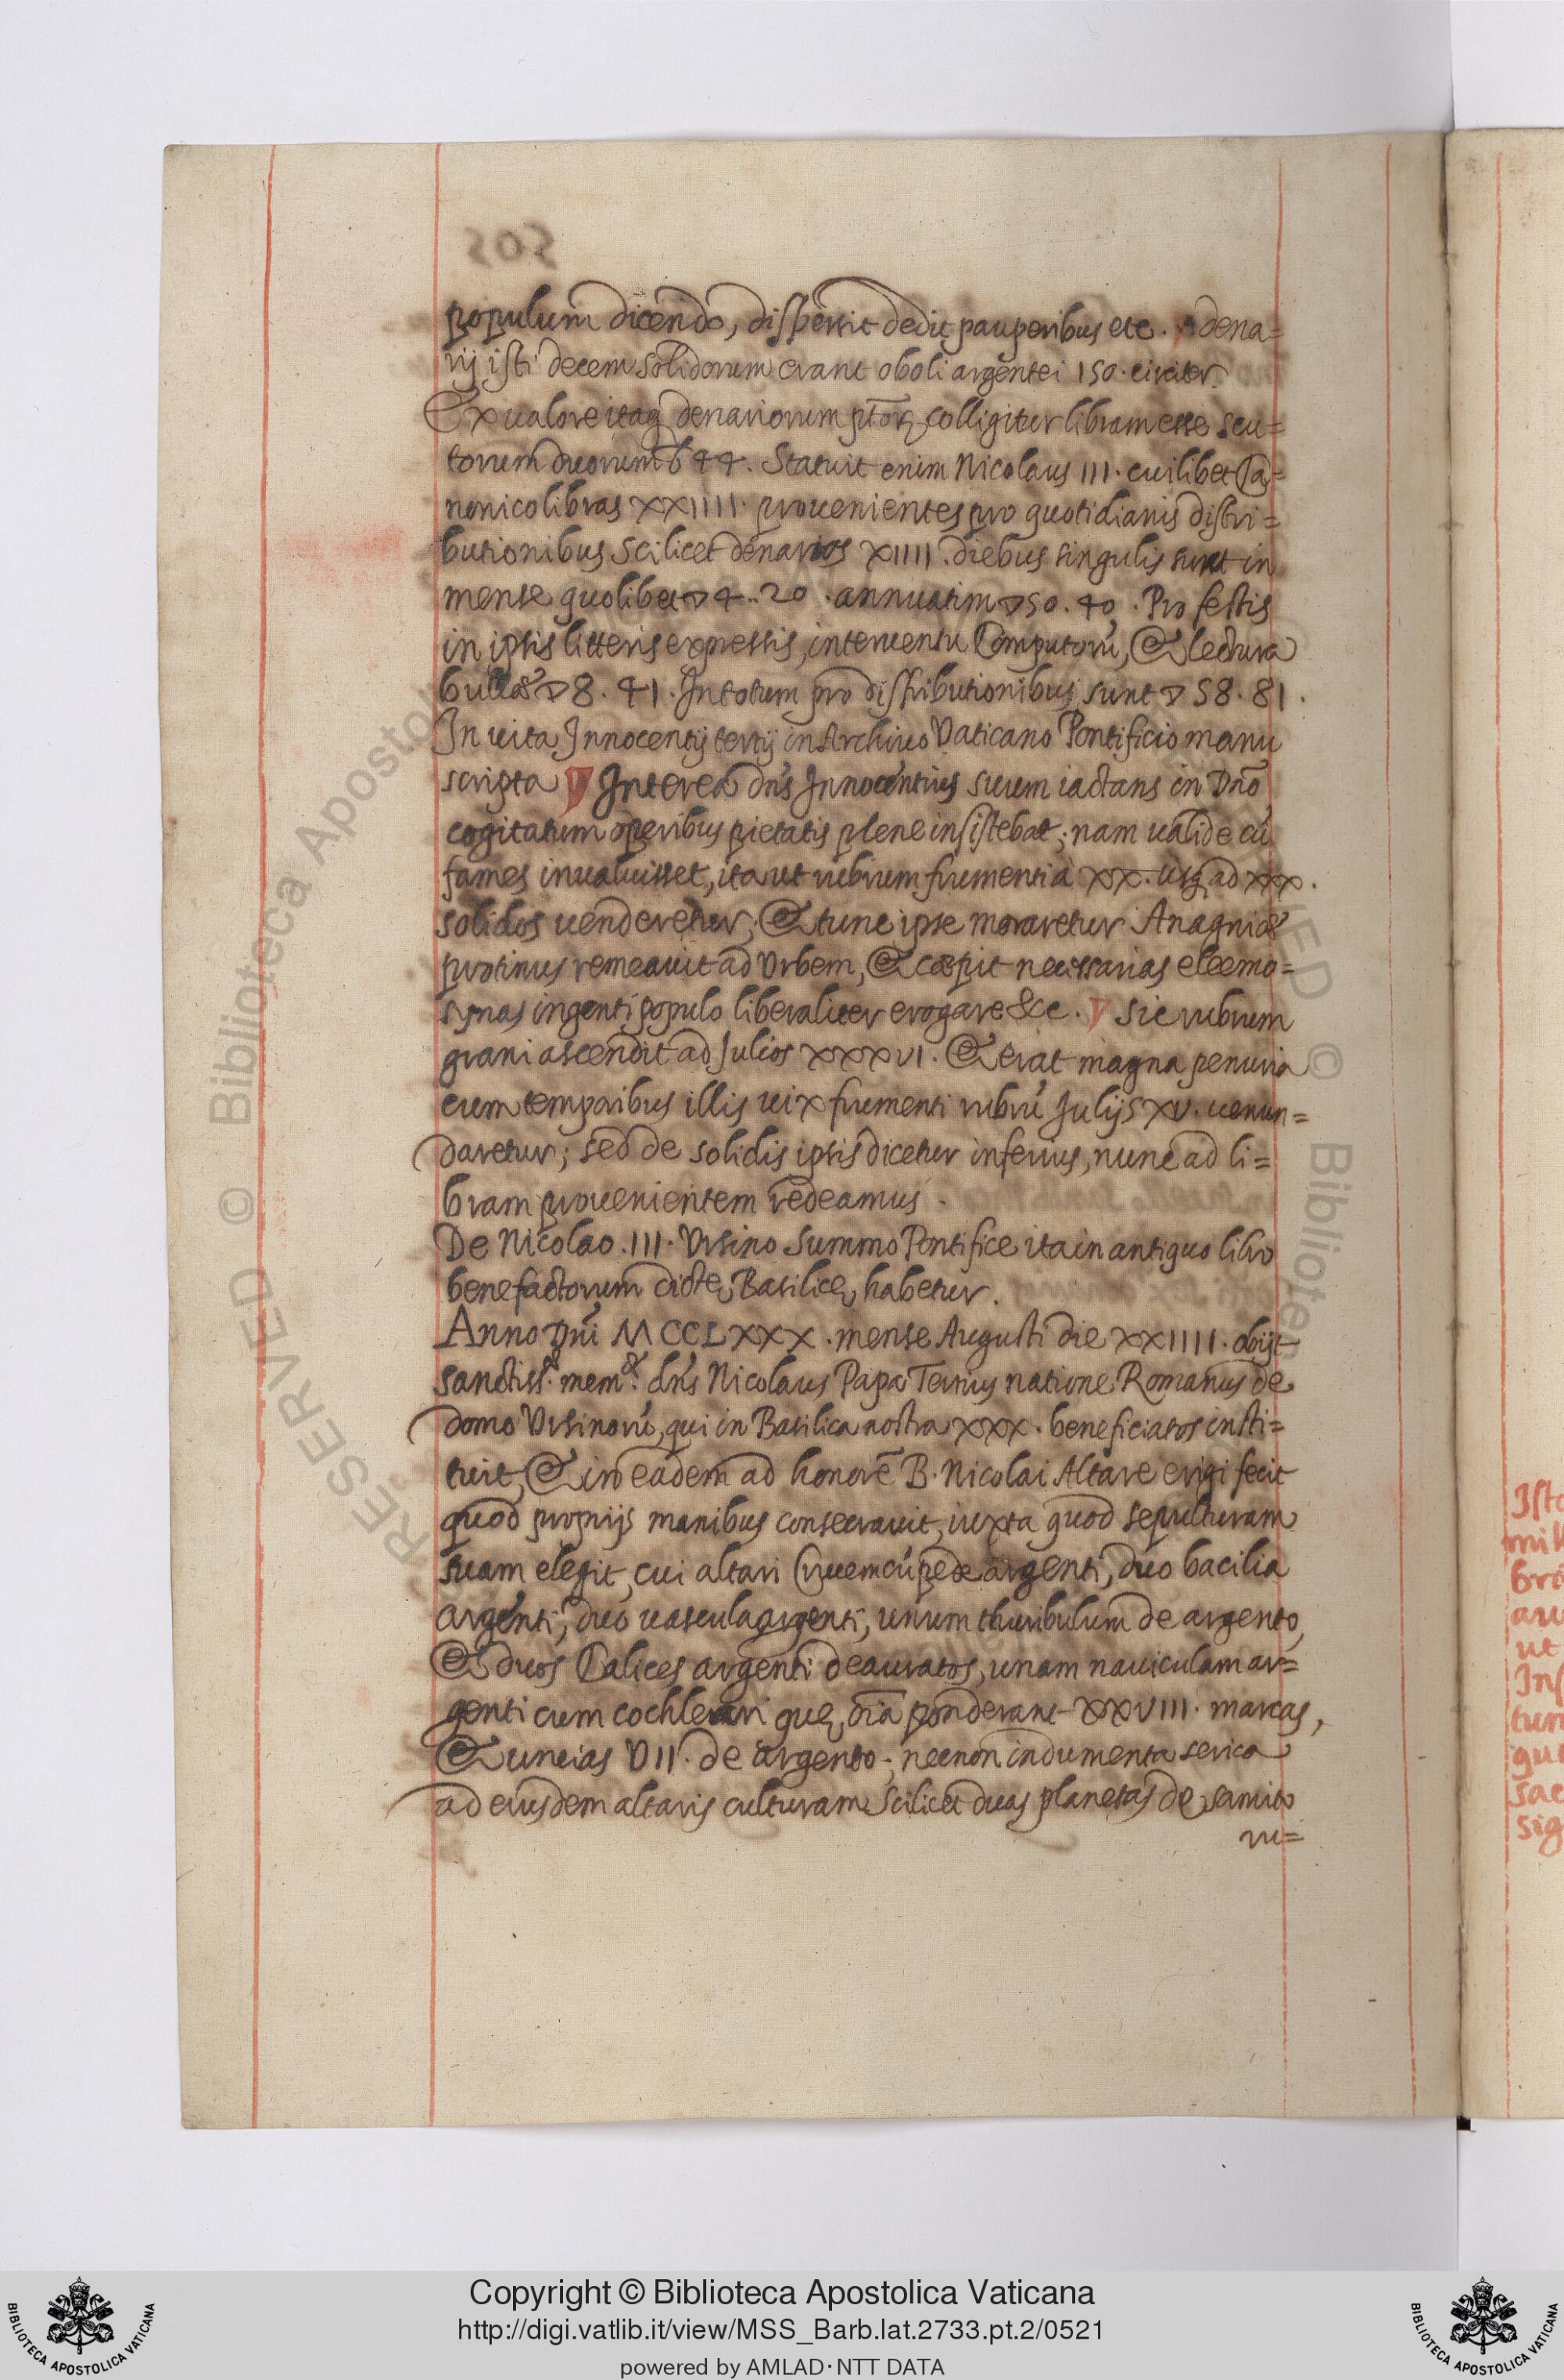 populum dicendo, dispersit dedit pauperibus etc. dena=
rij isti decem solidorum erant oboli argentei 150. circiter.
Ex ualore itaq denariorum ptorę colligitur libram esse scu=
torum duorum b 44. Statuit enim Nicolaus III. cuilibet Ca=
nonico libras XXIIII. prouenientes pro quotidianis distri=
butionibus scilicet denarios XIIII. diebus singulis sunt in
mense quolibet ▽ 4..20. annuatim ▽ 50.40. Pro festis
in ipsis litteris expressis, interuentu Computorũ, & lectura
bullæ ▽ 8.41. In totum pro distributionibus sunt ▽ 58.81.
In uita Innocentij tertij in Archiuo Vaticano Pontificio manu
scripta Interea dñs Innocentius suum iactans in Dño
cogitatum operibus pietatis plene insistebat; nam ualide cũ
fames inualuisset, ita ut rubrum frumenti à XX. usq ad XXX.
solidos uenderetur; & tunc ipse moraretur Anagniæ
protinus remeauit ad Urbem, & cœpit necessarias eleemo=
synas ingenti populo liberaliter erogare &c. sic rubrum
grani ascendit ad Julios XXXVI. & erat magna penuria
cum temporibus illis uix frumenti rubrũ Julijs XV. uenun=
daretur; sed de solidis ipsis dicetur inferius, nunc ad li=
bram prouenientem redeamus.
De Nicolao .III. Ursino Summo Pontifice ita in antiquo libro
benefactorum dictę Basilicę habetur.
Anno Dñi MCCLXXX. mense Augusti die XXIIII. obijt
sanctiss. memæ. dñs Nicolaus Papa Tertius natione Romanus de
domo Ursinorũ, qui in Basilica nostra XXX. beneficiatos insti=
tuit, & in eadem ad honorẽ B. Nicolai Altare erigi fecit
quod proprijs manibus consecrauit, iuxta quod sepulturam
suam elegit, cui altari Crucem cũ pede argenti, duo bacilia
argenti, duo uascula argenti, unum thuribulum de argento,
& duos Calices argenti deauratos, unam nauiculam ar=
genti cum cochleari quę oĩa ponderant XXVIII. marcas,
& uncias VII. de argento; necnon indumenta serica
ad eiusdem altaris culturam scilicet duas planetas de samito
ru=
Isto
mil
bro
au
ut
Ins
tun
qui
sac
sig
RESERVED © Biblioteca Apostol
Copyright © Biblioteca Apostolica Vaticana
http://digi.vatlib.it/view/MSS_Barb.lat.2733.pt.2/0521
powered by AMLAD·NTT DATA
BIBLIOTECA APOSTOLICA VATICANA
BIBLIOTECA APOSTOLICA VATICANA